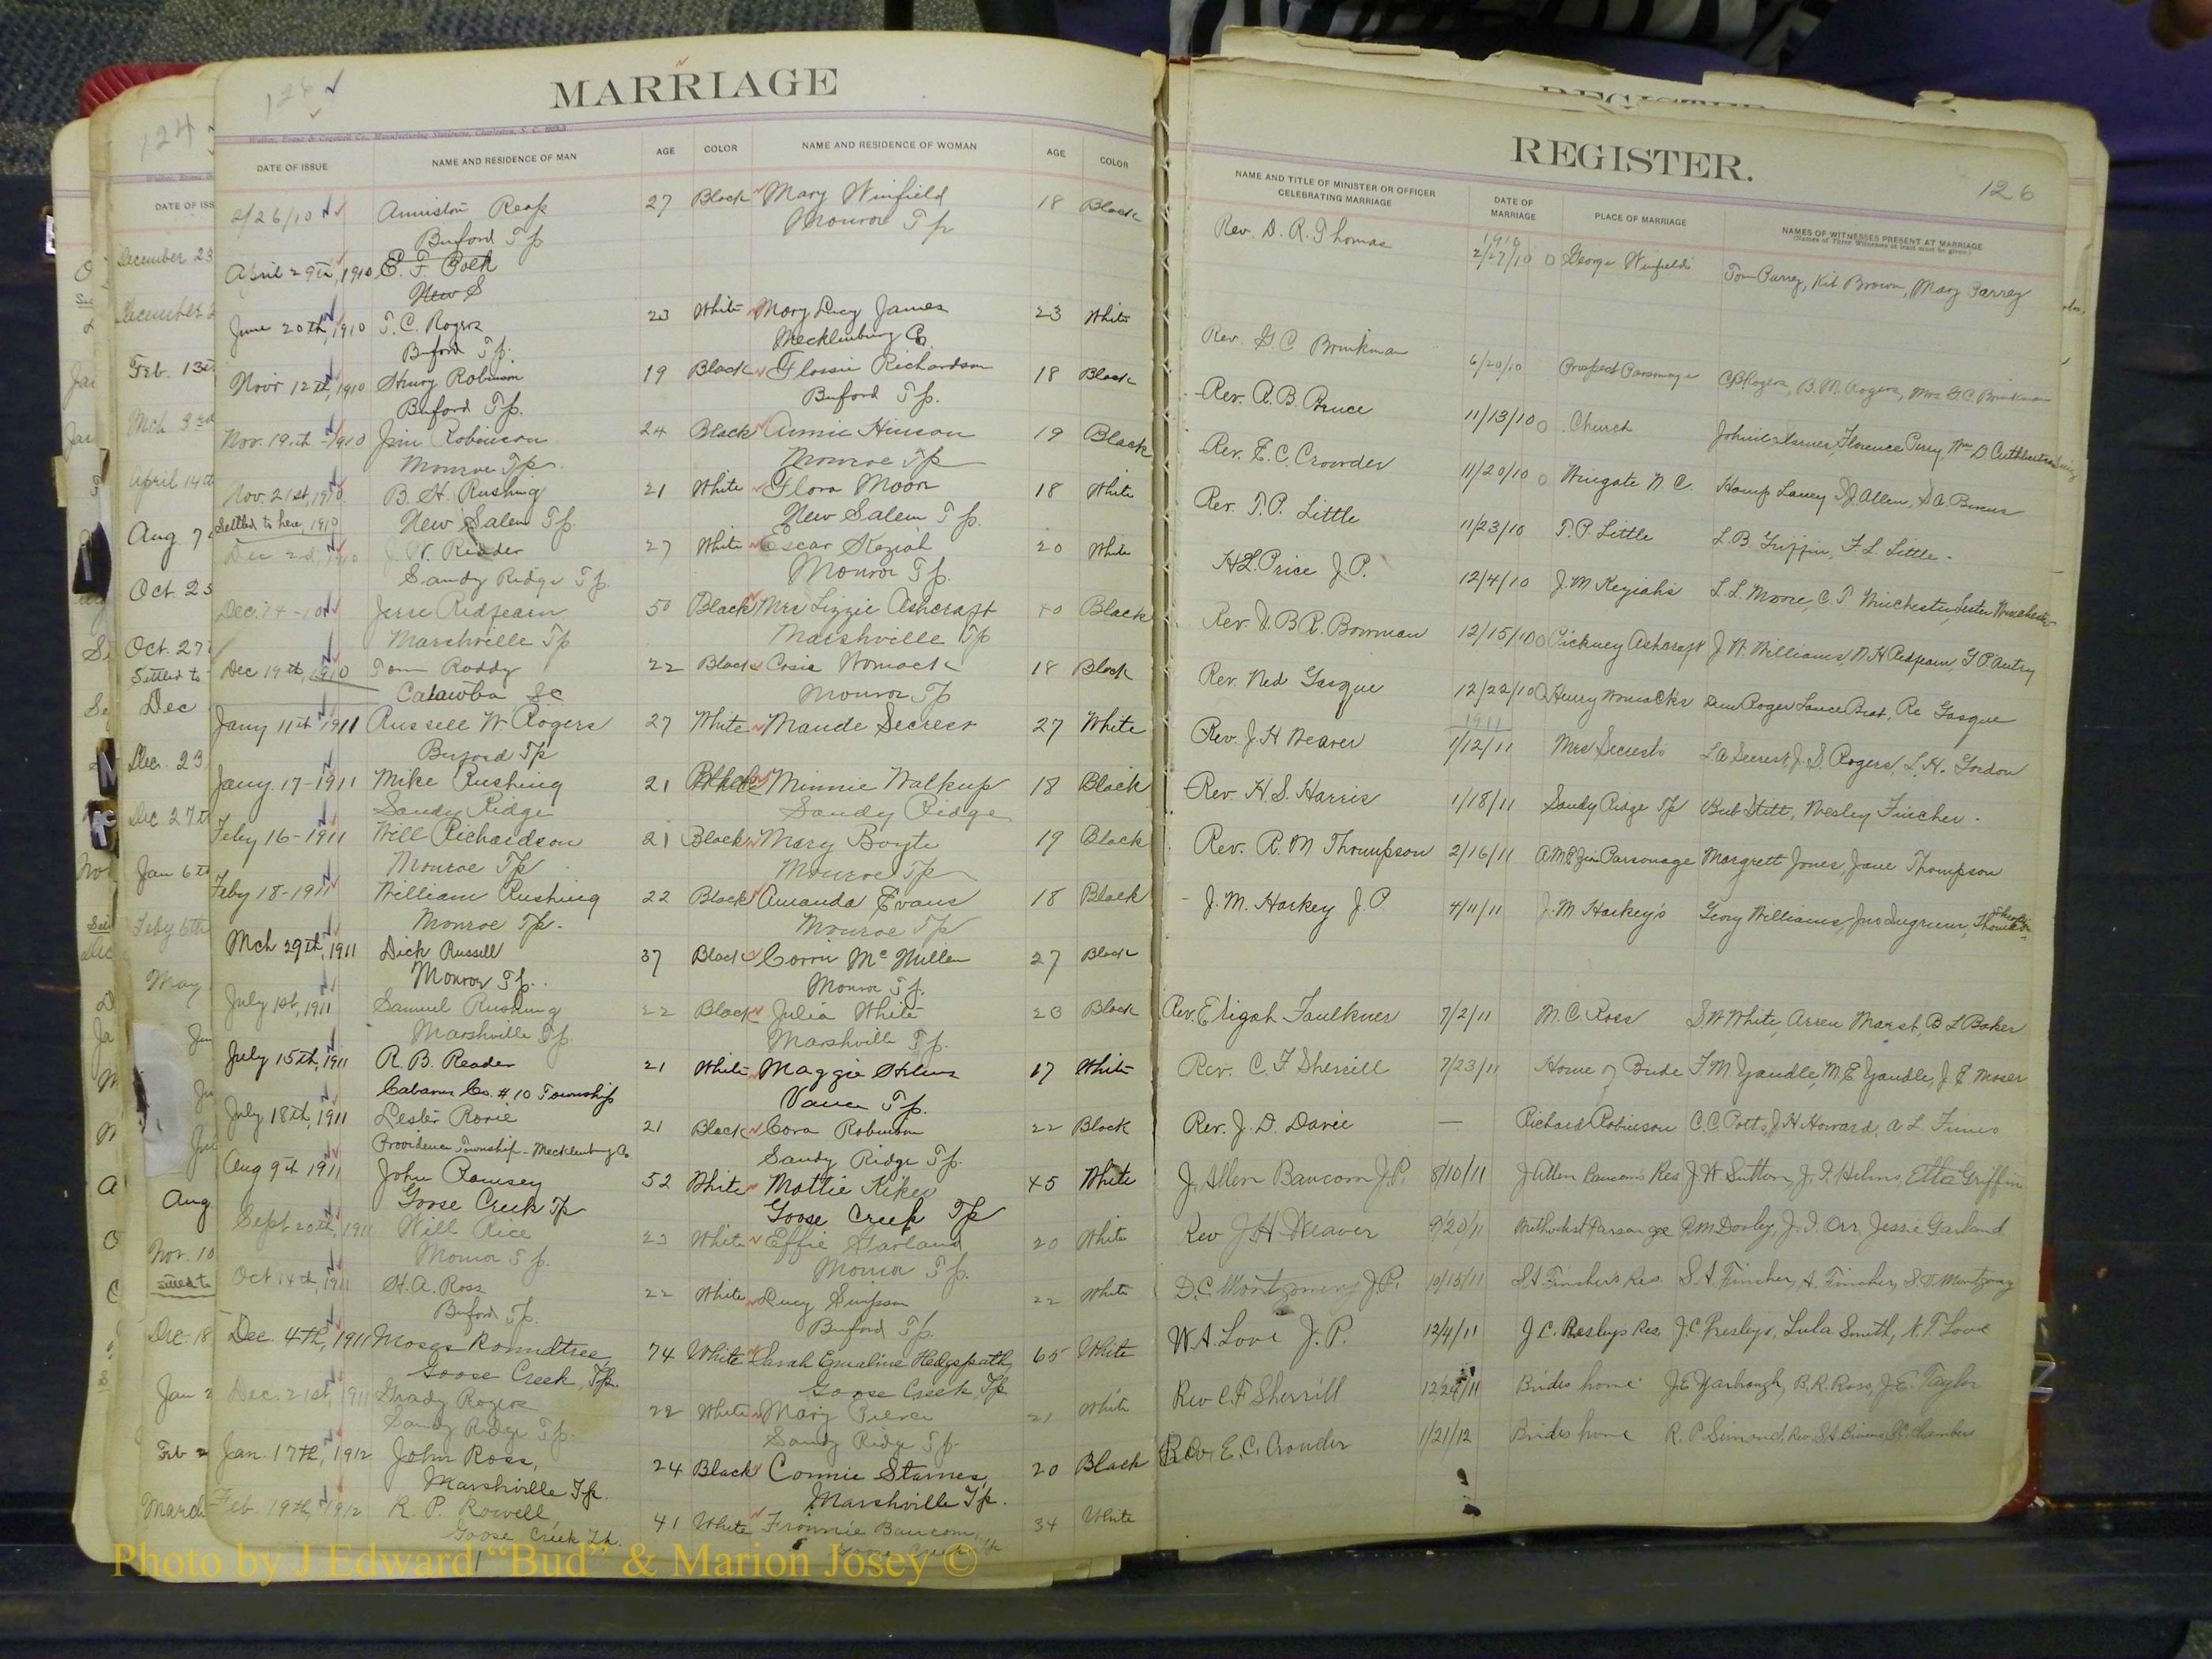 MARRIAGE
DATE OF ISSUE NAME AND RESIDENCE OF MAN AGE COLOR NAME AND RESIDENCE OF WOMAN AGE COLOR
2/26/10 Anniston Reap 27 Black Mary Winfield 18 Black
Buford Tp Monroe Tp
April 29th, 1910 E. F.
New S
June 20th, 1910 T. C. Rogers 23 White Mary Lucy James 23 White
Buford Tp. Mecklenburg Co.
Novr 12th, 1910 Henry Robinson 19 Black Flossie Richardson 18 Black
Buford Tp. Buford Tp.
Nov. 19th - 1910 Jim Robinson 24 Black Annie Hinson 19 Black
Monroe Tp. Monroe Tp
Nov. 21st, 1910 B. H. Rushing 21 White Flora Moore 18 White
Settled to here, 1910 New Salem Tp. New Salem Tp.
Dec 2d, 1910 J. W. Reader 27 White Escar Keziah 20 White
Sandy Ridge Tp. Monroe Tp.
Dec. 14-10 Jesse Redfearn 50 Black Mrs Lizzie Ashcraft 40 Black
Marshville Tp Marshville Tp
Dec 19th, 1910 Tom Roddy 22 Black Cosie Womack 18 Black
Catawba SC Monroe Tp
Jany 11th 1911 Russell W. Rogers 27 White Maude Secrest 27 White
Buford Tp
Jany. 17-1911 Mike Rushing 21 Black Minnie Walkup 18 Black
Sandy Ridge Sandy Ridge
Feby 16-1911 Will Richardson 21 Black Mary Boyte 19 Black
Monroe Tp Monroe Tp
Feby 18-1911 William Rushing 22 Black Amanda Evans 18 Black
Monroe Tp. Monroe Tp
Mch 29th, 1911 Dick Russell 37 Black Corrie McMullen 27 Black
Monroe Tp. Monroe Tp.
July 1st, 1911 Samuel Rushing 22 Black Julia White 23 Black
Marshville Tp. Marshville Tp.
July 15th, 1911 R. B. Reader 21 White Maggie Helms 17 White
Cabarrus Co. #10 Township Vance Tp.
July 18th, 1911 Lester Rorie 21 Black Cora Robinson 22 Black
Providence Township - Mecklenburg Co Sandy Ridge Tp.
Aug 9th 1911 John Ramsey 52 White Mattie Kiker 45 White
Goose Creek Tp Goose Creek Tp
Sept 20th, 1911 Will Rice 23 White Effie Garland 20 White
Monroe Tp. Monroe Tp.
Oct 14th, 1911 H. A. Ross 22 White Lucy Simpson 22 White
Buford Tp. Buford Tp.
Dec. 4th, 1911 Moses Roundtree 74 White Sarah Emaline Hedgspath 65 White
Goose Creek, Tp. Goose Creek, Tp
Dec. 21st, 1911 Grady Rogers 22 White Mary Pierce 21 White
Sandy Ridge Tp. Sandy Ridge Tp.
Jan. 17th, 1912 John Ross, 24 Black Connie Starnes, 20 Black
Marshville Tp. Marshville Tp.
Feb. 19th, 1912 R. P. Rowell, 41 White Fronnie Baucom, 34 White
Goose Creek Tp. Goose Creek Tp
REGISTER.
126
NAME AND TITLE OF MINISTER OR OFFICER CELEBRATING MARRIAGE DATE OF MARRIAGE PLACE OF MARRIAGE NAMES OF WITNESSES PRESENT AT MARRIAGE
(Names of Three Witnesses at least must be given)
1910
Rev. D. R. Thomas 2/27/10 George Winfields Tom Currey, Kit Brown, Mary Currey
Rev. G. C. Brinkman 6/20/10 Prospect Parsonage C B Rogers, B. M. Rogers, Mrs G C Brinkman
Rev. A. B. Bruce 11/13/10 Church Florence Perry, Wm D. Cuthbertson
Rev. E. C. Crowder 11/20/10 Wingate N. C. Hamp Laney D J Allen, S A Bivens
Rev. T. P. Little 11/23/10 T. P. Little L. B. Griffin, F. L. Little
H L Price J. P. 12/4/10 J. M. Keziahs L. L. Moore, C. T. Winchester, Lester Winchester
Rev. D. B R. Bowman 12/15/10 Pickney Ashcraft J W. Williams, N. H Redfearn G. P. Autry
Rev. Ned Gasque 12/22/10 Henry Womacks Roger Re Gasque
1911
Rev. J. H Weaver 1/12/11 Mrs Secrests L A Secrest J. S. Rogers, L. H. Gordon
Rev. H. S. Harris 1/18/11 Sandy Ridge Tp Bub Stitt, Wesley Fincher
Rev. R. M Thompson 2/16/11 A M E Zion Parsonage Margrett Jones, Jane Thompson
J. M. Harkey J. P 4/11/11 J. M. Harkey's Williams, Jno
Rev. Eligah Faulkner 7/2/11 M. C Ross S. W White B L Baker
Rev. C. F Sherrill 7/23/11 Home of Bride F. M Yandle, M. E Yandle, J. E Moser
Rev. J. D. Davie — Richard Robinson C. C. Potts, J H Howard, A L Funes
J. Allen Baucom J. P. 8/10/11 J Allen Baucom's Res J. W. Sutton, J. I. Helms, Etta Griffin
Rev J H Weaver 9/20/11 Methodist Parsonage R M Dooley, J. I. Orr, Jessie Garland
D. C. Montgomery J. P. 10/15/11 S. A Fincher's Res. S. A Fincher, A. Fincher, S. D. Montgomery
W. A. Love J. P. 12/4/11 J. C. Presleys Res. J. C. Presleys, Lula Smith, N. T. Love
Rev C. F Sherrill 12/24/11 Brides home J E Yarbrough, B. R. Ross, J. E. Taylor
Rev. E. C. Crowder 1/21/12 Brides home R. P Simond, Rev. S A Bivens, Chambers
124
DATE OF ISS
December 23
December 2
Feb. 13
Mch 3rd
April 14th
Aug 7
Oct. 25
Oct. 27
Settled to
Dec
Dec. 23
Dec 27th
Jan 6th
Feby 6th
May
Aug
Nov. 10
Dec. 18
Jan 2
Feb 2
March
Photo by J Edward "Bud" & Marion Josey ©